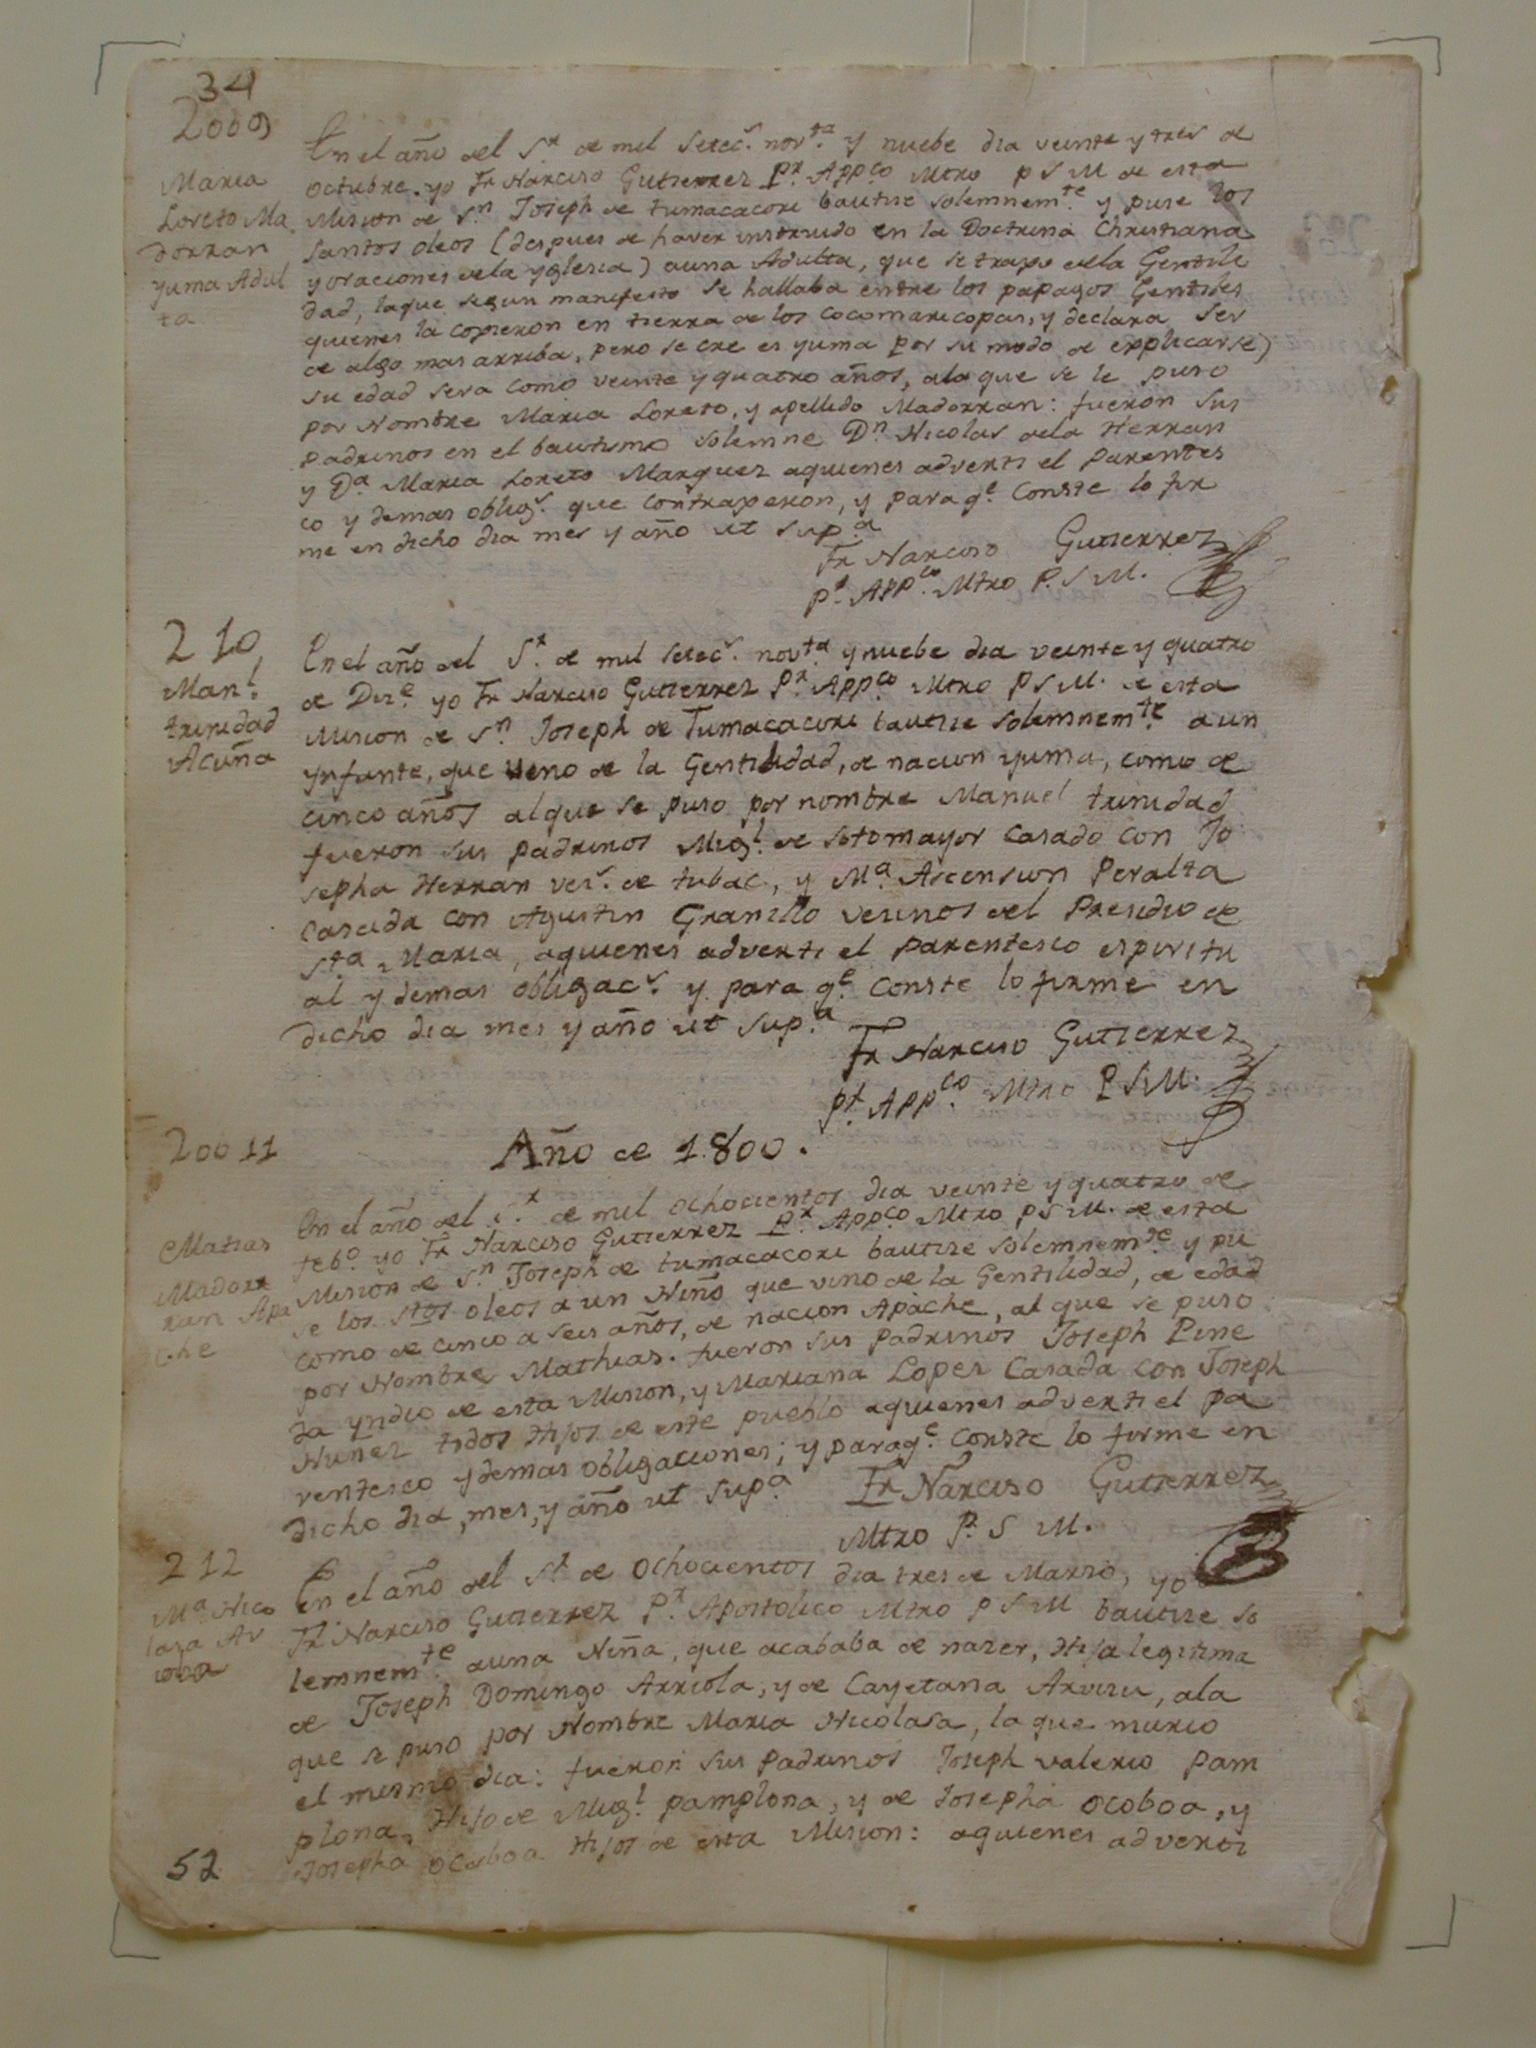 34
2009
Maria
Loreto Ma
dorran
yuma Adul
ta
En el año del S.r de mil setec.s nov.ta y nuebe dia veinte y tres de
octubre. yo Fr Narciso Gutierrez P.r App.co Mtro p S M de esta
Mision de S.n Joseph de tumacacori bautise solemnem.te y puse los
santos oleos (despues de haver instruido en la Doctrina Christiana
y oraciones dela yglesia) auna Adulta, que se trajo dela Gentili
dad, laque segun manifesto se hallaba entre los papagos Gentiles
quienes la cojieron en tierra de los cocomaricopas, y declara ser
de algo mas arriba, pero se cre es yuma por su modo de explicarse)
su edad sera como veinte y quatro años, ala que se le puso
por Nombre Maria Loreto, y apellido Madorran: fueron sus
padrinos en el bautismo solemne D.n Nicolas dela Herran
y D.a Maria Loreto Marquez aquienes adverti el parentes
co y demas oblig.s que contrajeron, y para q.e Conste lo fir
me en dicho dia mes y año ut sup.a
Fr Narciso Gutierrez
P.r App.co Mtro P. S M.
210
Man.l
trinidad
Acuña
En el año del S.r de mil setec.s nov.ta y nuebe dia veinte y quatro
de Diz.e yo Fr Narciso Gutierrez P.r App.co Mtro P S M. de esta
Mision de S.n Joseph de Tumacacori bautise solemnem.te a un
ynfante, que veno de la Gentilidad, de nacion yuma, como de
cinco años alque se puso por nombre Manuel trinidad
fueron sus padrinos Mig.l de sotomayor casado con Jo
sepha Herran vez.s de tubac, y M.a Ascension Peralta
casada con Agustin Granillo vecinos del Presidio de
Sta Maria, aquienes adverti el parentesco espiritu
al y demas obligac.s y para q.e Conste lo firme en
dicho dia mes y año ut sup.a
Fr Narciso Gutierrez
P.r App.co Mtro P S M.
20011
Año de 1800.
Matias
Madorr
ran Apa
che
En el año del S.r de mil ochocientos dia veinte y quatro de
feb.o yo Fr Narciso Gutierrez P.r App.co Mtro p S M. de esta
Mision de S.n Joseph de tumacacori bautise solemnem.te y pu
se los stos oleos a un Niño que vino de la Gentilidad, de edad
como de cinco a seis años, de nacion Apache, al que se puso
por Nombre Mathias. fueron sus Padrinos Joseph Pine
da yndio de esta Mision, y Mariana Lopez Casada con Joseph
Nuñez todos Hijos de este pueblo aquienes adverti el pa
rentesco y demas obligaciones; y para q.e Conste lo firme en
dicho dia, mes, y año ut sup.a
Fr Narciso Gutierrez
Mtro P. S M.
212
M.a Nico
lasa Ar
iola
En el año del S.r de ochocientos dia tres de Marzo, yo
Fr Narciso Gutierrez P.r Apostolico Mtro P S M bautise so
lemnem.te auna Niña, que acababa de nazer, Hija legitima
de Joseph Domingo Arriola, y de Cayetana Arvizu, ala
que se puso por Nombre Maria Nicolasa, la que murio
el mismo dia: fueron sus Padrinos Joseph valerio Pam
plona, Hijo de Mig.l pamplona, y de Josepha ocoboa, y
Josepha ocoboa Hijos de esta Mision: aquienes adverti
52